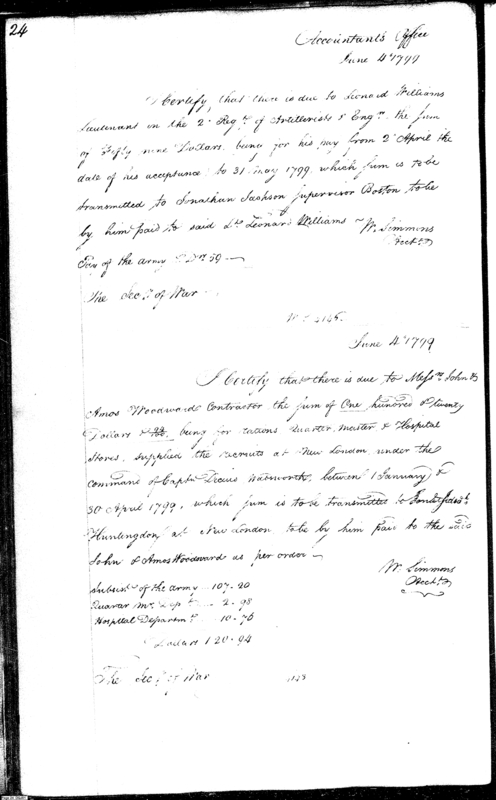 24
Accountant's Office
June 4th 1799
I Certify, that there is due to Leonard Williams
Lieutenant in the 2d Regt. of Artillerists & Engrs. the sum
of Fifty nine Dollars. being for his pay from 2d April the
date of his acceptance to 31 May 1799, which sum is to be
transmitted to Jonathan Jackson Supervisor Boston to be
by him paid to said Lt. Leonard Williams
W. Simmons
Acct.
Pay of the army Drs 59
The Secy. of War
June 4th 1799
I Certify that there is due to Messrs. John &
Amos Woodward Contractor the sum of One hundred & twenty
Dollars & being for rations Quarter Master & Hospital
Stores, supplied the recruits at New London under the
command of Captn. Decius Wadsworth, between 1 January &
30 April 1799, which sum is to be transmitted to
Huntingdon at New London to be by him paid to the said
John & Amos Woodward as per order
W. Simmons
Acct.
Subsist. of the army 107-20
Quarter Mr. Dept. 2-98
Hospital Departmt. 10-76
Dollars 120-94
The Secy. of War